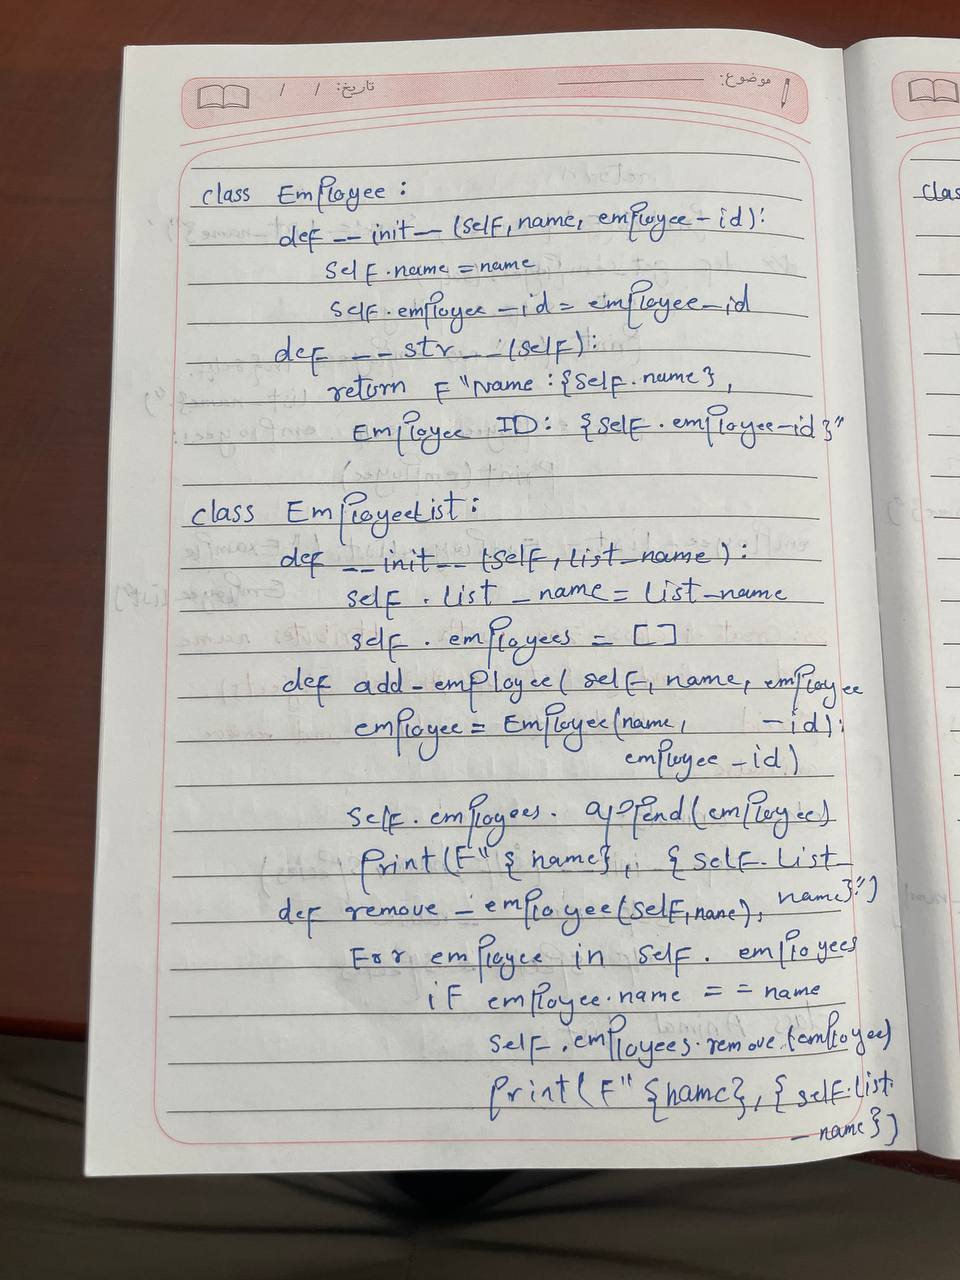 موضوع:
تاریخ: / /
class Employee:
def __init__(self, name, employee_id):
self.name = name
self.employee_id = employee_id
def __str__(self):
return F"Name: {self.name},
Employee ID: {self.employee_id}"
class EmployeeList:
def __init__(self, list_name):
self.list_name = list_name
self.employees = []
def add_employee(self, name, employee
employee = Employee(name, _id):
employee_id)
self.employees.append(employee)
print(F"{name}, {self.list_
def remove_employee(self, name), name}")
For employee in self.employees
if employee.name == name
self.employees.remove(employee)
print(F"{name}, {self.list
_name})
clas